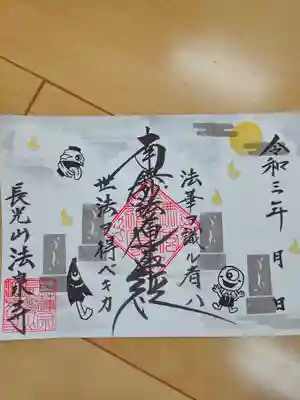 令和三年 月 日
法華ヲ識ル者ハ
南無妙法蓮華経
世法ヲ得ベキカ
長光山法泉寺